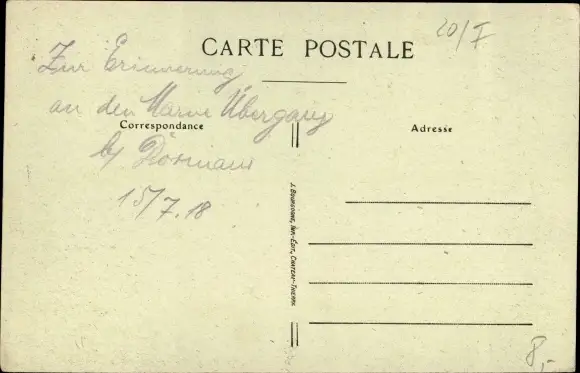 20/I
CARTE POSTALE
Zur Erinnerung
an den Marne Übergang
Correspondance
Adresse
by Dormans
15/7.18
J. BOURGOGNE, IMP.-EDIT., CHATEAU-THIERRY
8,-